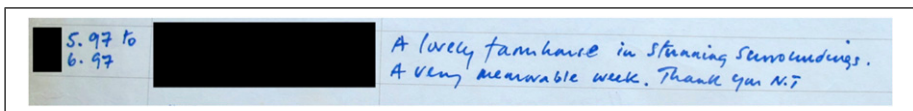 5.97 to
6.97
A lovely farmhouse in stunning surroundings.
A very memorable week. Thank you N.T